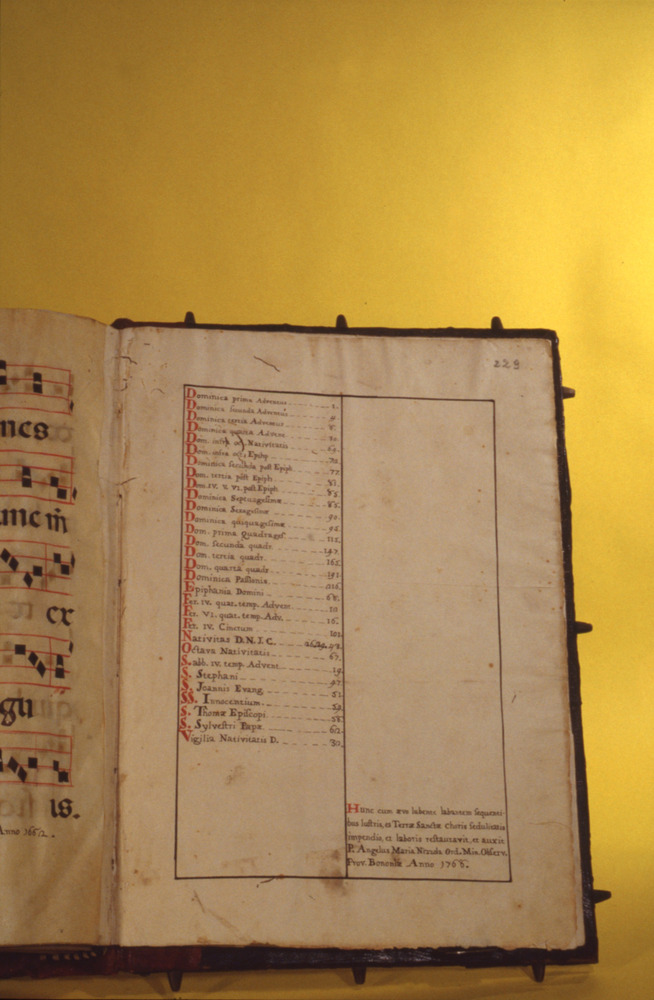 nes
unc m̄
ex
gu
is.
Anno 1662.
229
Dominica prima Adventus 1.
Dominica secunda Adventus
Dominica tertia Adventus
Dominica quarta Adventus
Dom. infra oct. Nativitatis
Dom. infra oct. Epiph.
Dominica secunda post Epiph. 77.
Dom. tertia post Epiph. 81.
Dom. IV. V. VI. post Epiph. 83.
Dominica Septuagesimæ 85.
Dominica Sexagesimæ
Dominica quiquagesimæ
Dom. prima Quadrages. 112.
Dom. secunda quadr.
Dom. tertia quadr. 165.
Dom. quarta quadr. 191.
Dominica Passionis
Epiphania Domini 68.
Fer. IV. quat. temp. Advent. 10
Fer. VI. quat. temp. Adv. 16.
Fer. IV. Cinerum 101.
Nativitas D.N.I.C.
Octava Nativitatis 67.
Sabb. IV. temp. Advent. 19
S. Stephani 47.
S. Joannis Evang. 51.
SS. Innocentium
S. Thomæ Episcopi 58.
S. Sylvestri Papæ
Vigilia Nativitatis D. 30.
Hunc cum ævo labente labantem sequenti-
bus lustris, et Terræ Sanctæ Choris sedulitatis
impendio, et laboris restauravit, et auxit
P. Angelus Maria Ord. Min. Observ.
Prov. Bononiæ Anno 1765.